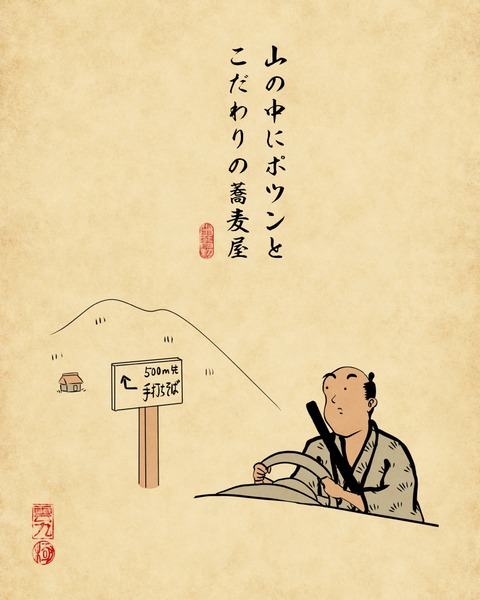 山の中にポツンと
こだわりの蕎麦屋
500m先
手打ちそば